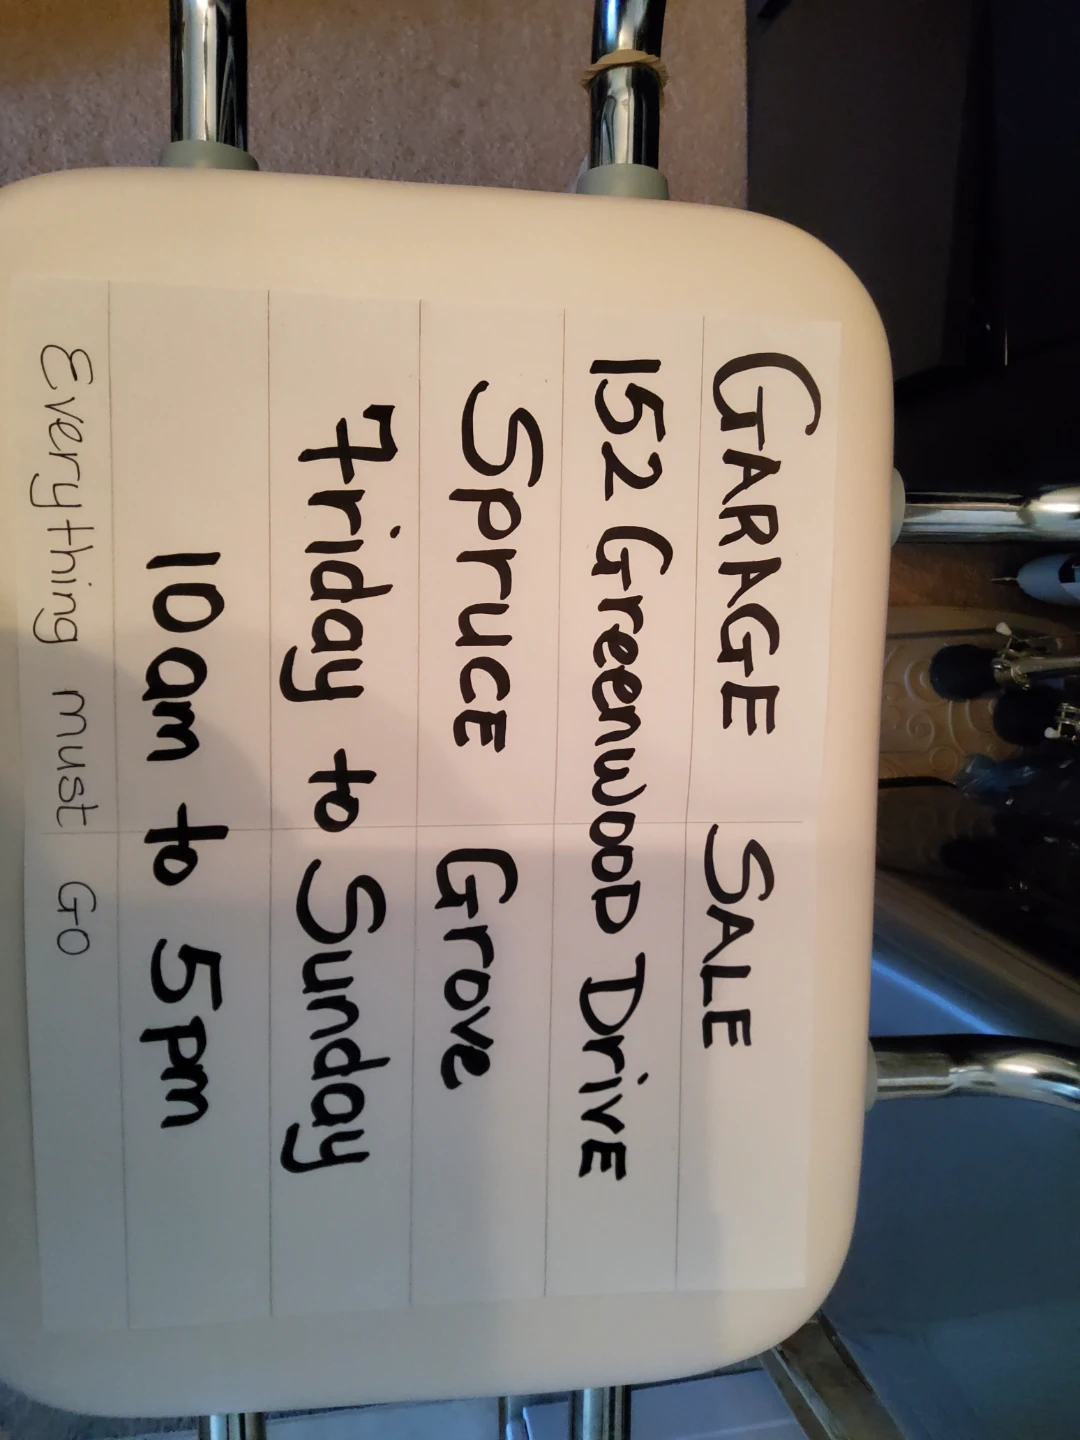 GARAGE SALE
152 Greenwood Drive
Spruce Grove
Friday to Sunday
10am to 5pm
Everything must Go